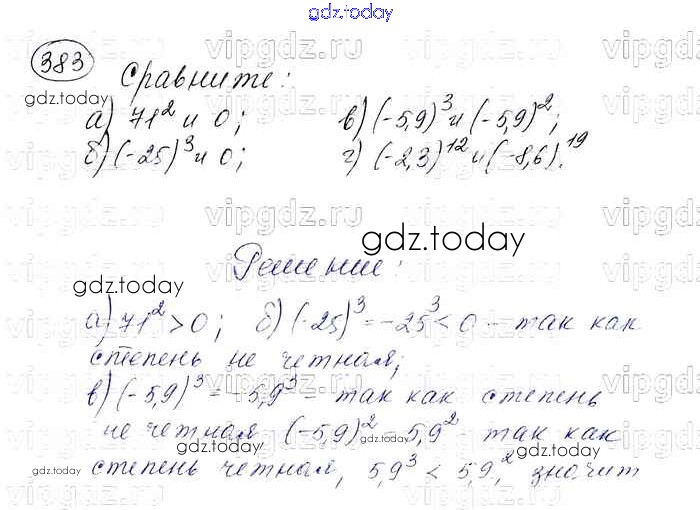 gdz.today
383
Сравните:
gdz.today
а) 71² и 0; в) (-5,9)³ и (-5,9)²;
б) (-25)³ и 0; г) (-2,3)¹² и (-8,6)¹⁹.
vipgdz.ru vipgdz.ru vipgdz.ru vipgdz.ru
gdz.today
Решение:
gdz.today
а) 71² > 0; б) (-25)³ = -25³ < 0 - так как
степень не четная;
в) (-5,9)³ = -5,9³ - так как степень
не четная (-5,9)² = 5,9² так как
gdz.today
степень четная, 5,9³ < 5,9², значит
gdz.today
gdz.today